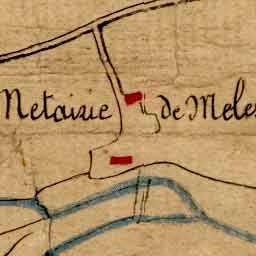 Metairie de Meles